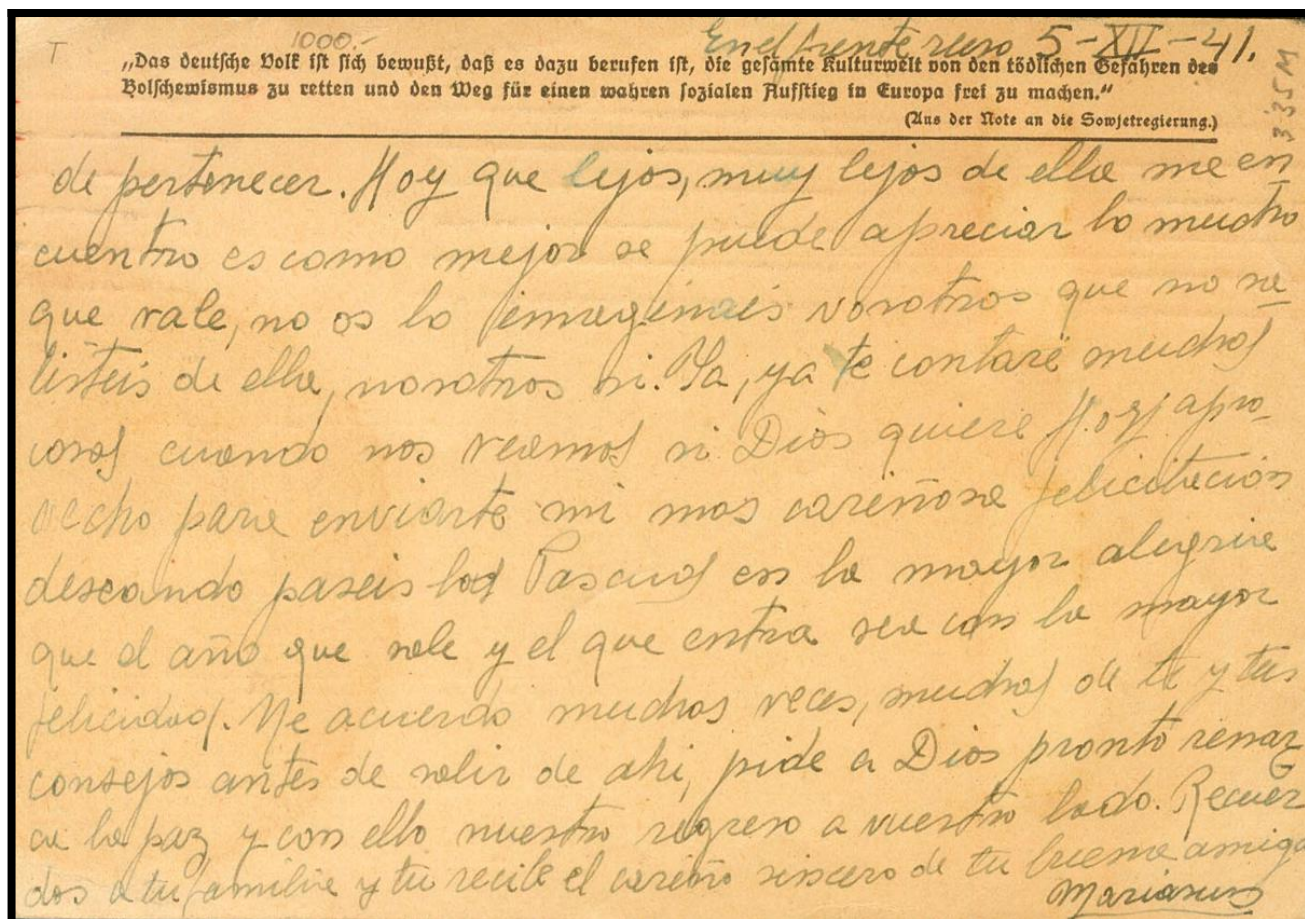 T
1000.-
En el frente ruso 5-XII-41.
„Das deutsche Volk ist sich bewußt, daß es dazu berufen ist, die gesamte Kulturwelt von den tödlichen Gefahren des
Bolschewismus zu retten und den Weg für einen wahren sozialen Aufstieg in Europa frei zu machen.“
(Aus der Note an die Sowjetregierung.)
335M
de pertenecer. Hoy que lejos, muy lejos de ella me en
cuentro es como mejor se puede apreciar lo mucho
que vale, no os lo imaginais vosotros que no sa
listeis de ella, nosotros si. Ya, ya te contaré muchas
cosas cuando nos veamos si Dios quiere Hoy apro
vecho para enviarte mi mas cariñosa felicitación
deseando paseis las Pascuas en la mayor alegria
que el año que sale y el que entra sea con la mayor
felicidad. Me acuerdo muchas veces, muchas de ti y tus
consejos antes de salir de ahi, pide a Dios pronto renaz
ca la paz y con ello nuestro regreso a vuestro lado. Recuer
dos a tu familia y tu recibe el cariño sincero de tu buena amiga